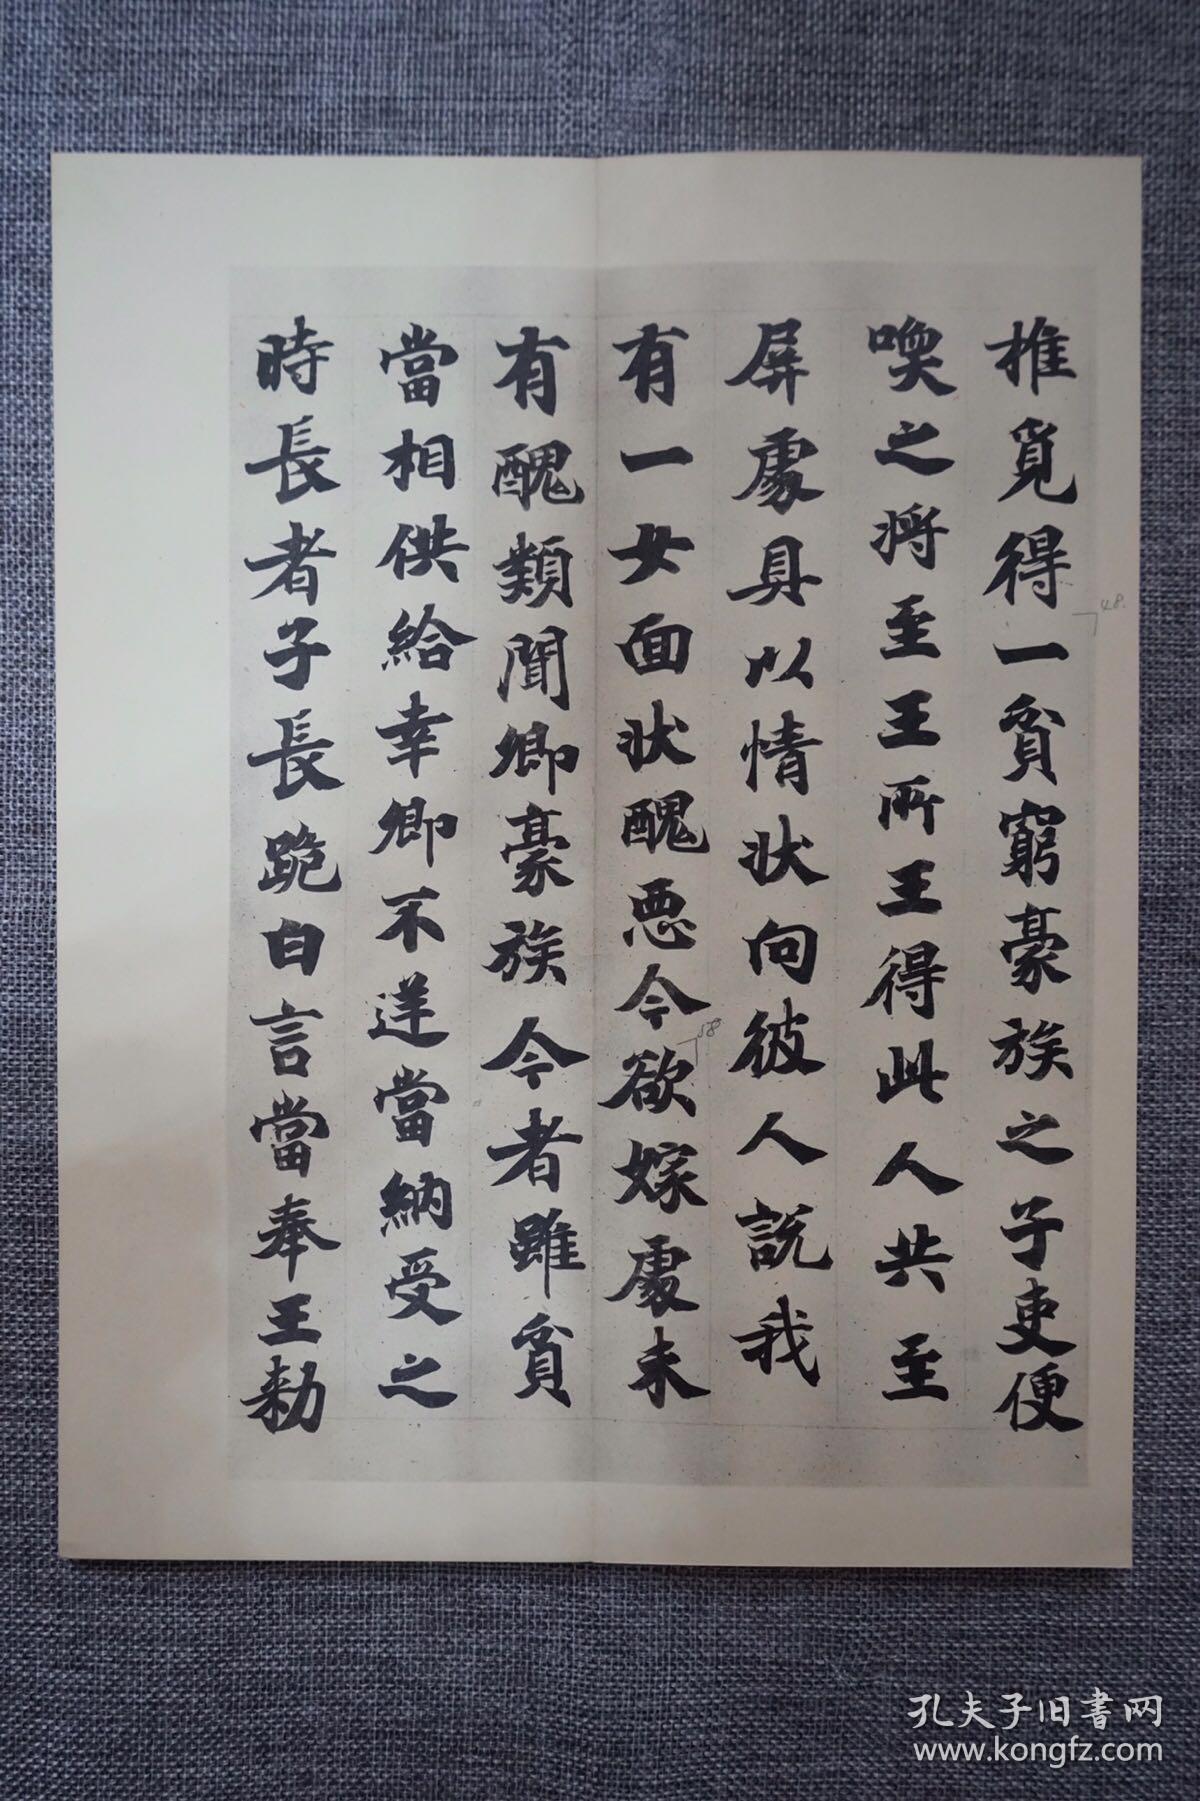 推覓得一貧窮豪族之子吏便
喚之將至王所王得此人共至
屏處具以情狀向彼人說我
有一女面狀醜惡今欲嫁處未
有醜類聞卿豪族今者雖貧
當相供給幸卿不逆當納受之
時長者子長跪白言當奉王勑
48.
58
孔夫子旧書网
www.kongfz.com